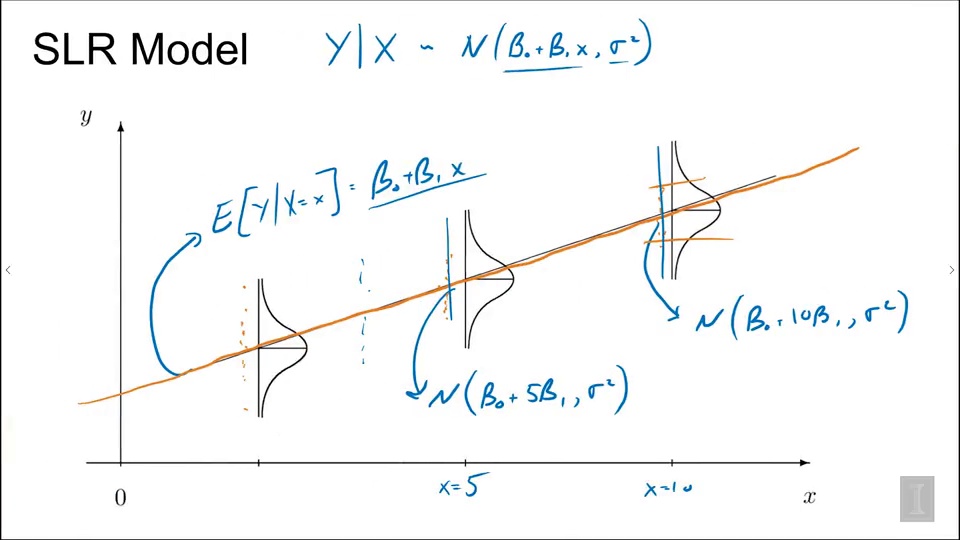 SLR Model
Y|X ~ N(β₀+β₁x, σ²)
y
E[Y|X=x] = β₀+β₁x
N(β₀+10β₁, σ²)
N(β₀+5β₁, σ²)
0
x=5
x=10
x
I